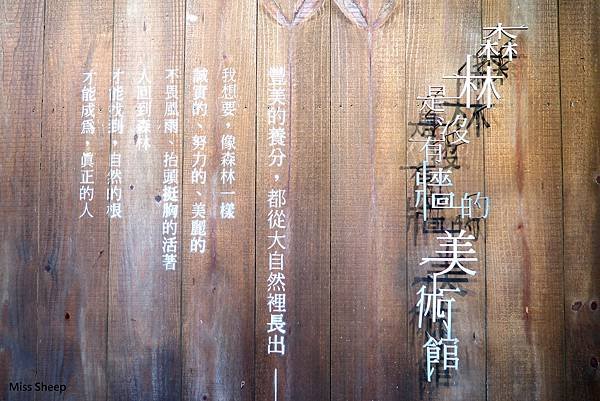 森林是沒有牆的美術館
豐美的養分，都從大自然裡長出——
我想要，像森林一樣
誠實的、努力的、美麗的
不畏風雨、抬頭挺胸的活著
人回到森林
才能找到，自然的根
才能成為，真正的人
Miss Sheep